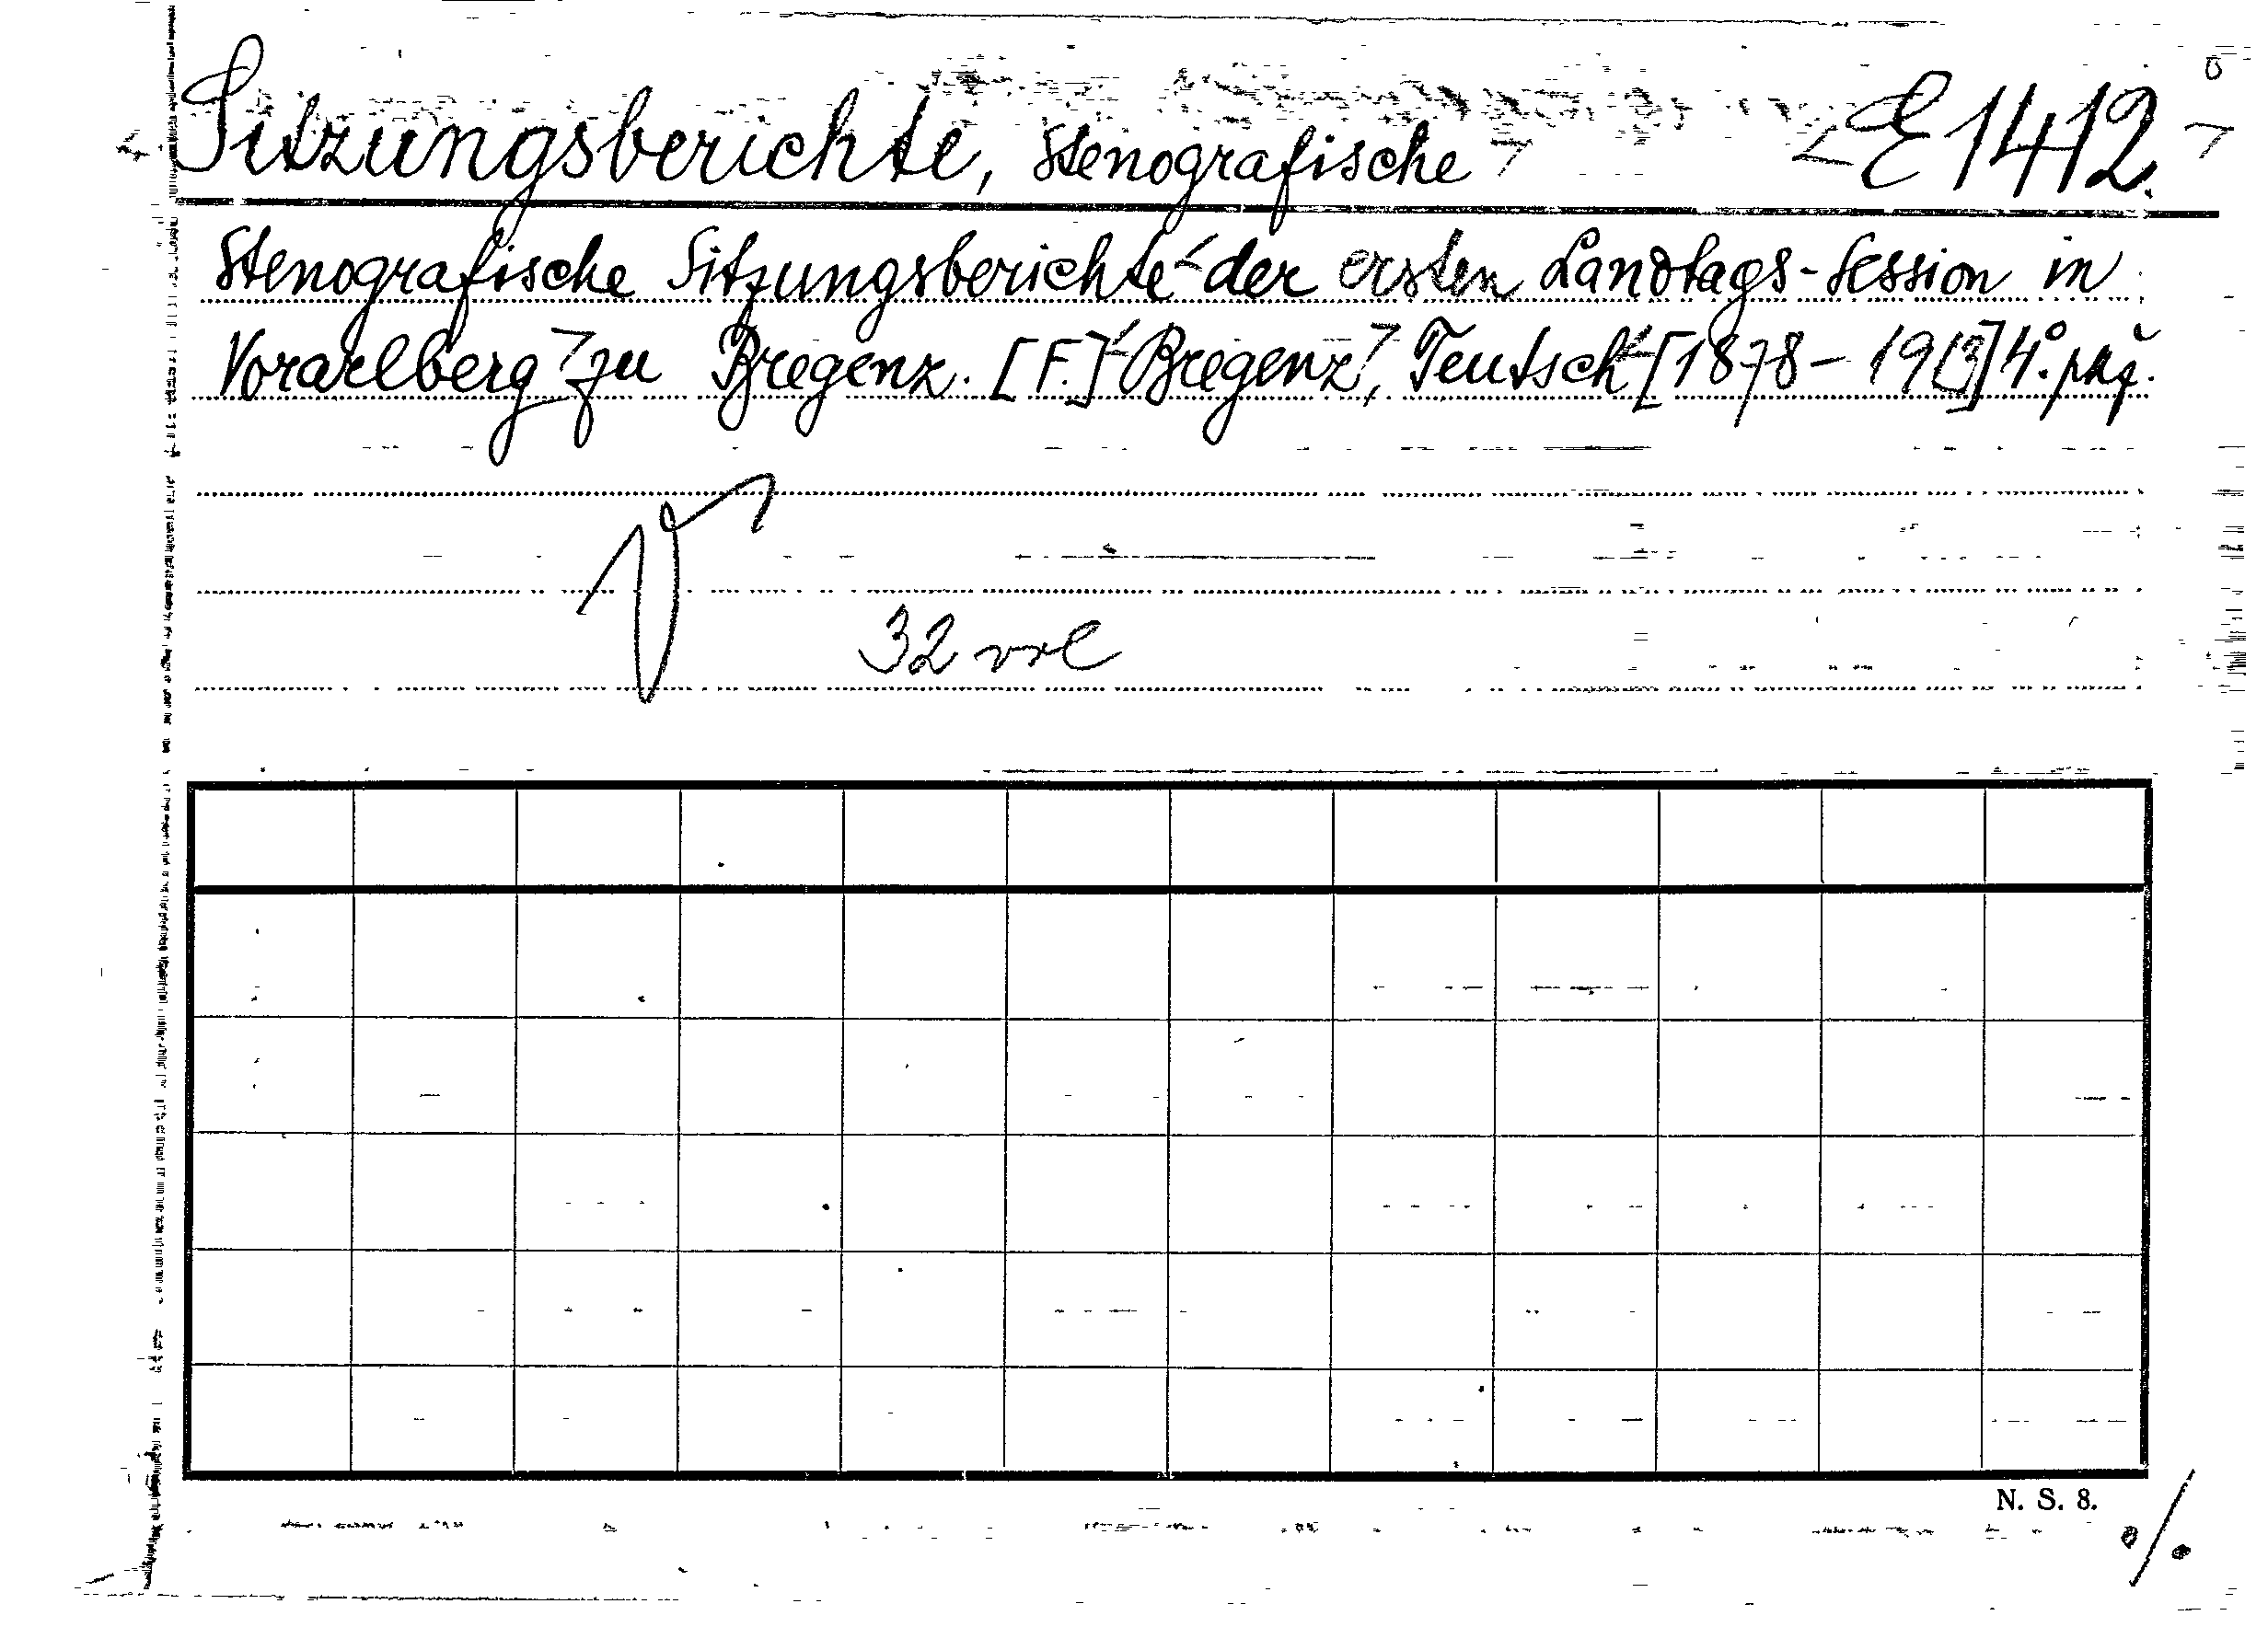 Sitzungsberichte, stenografische E 1412.
Stenografische Sitzungsberichte der ersten Landtags-Session in
Vorarlberg zu Bregenz. [F.] Bregenz, Teutsch [1878-1913] 4°.
32 vol
N. S. 8.